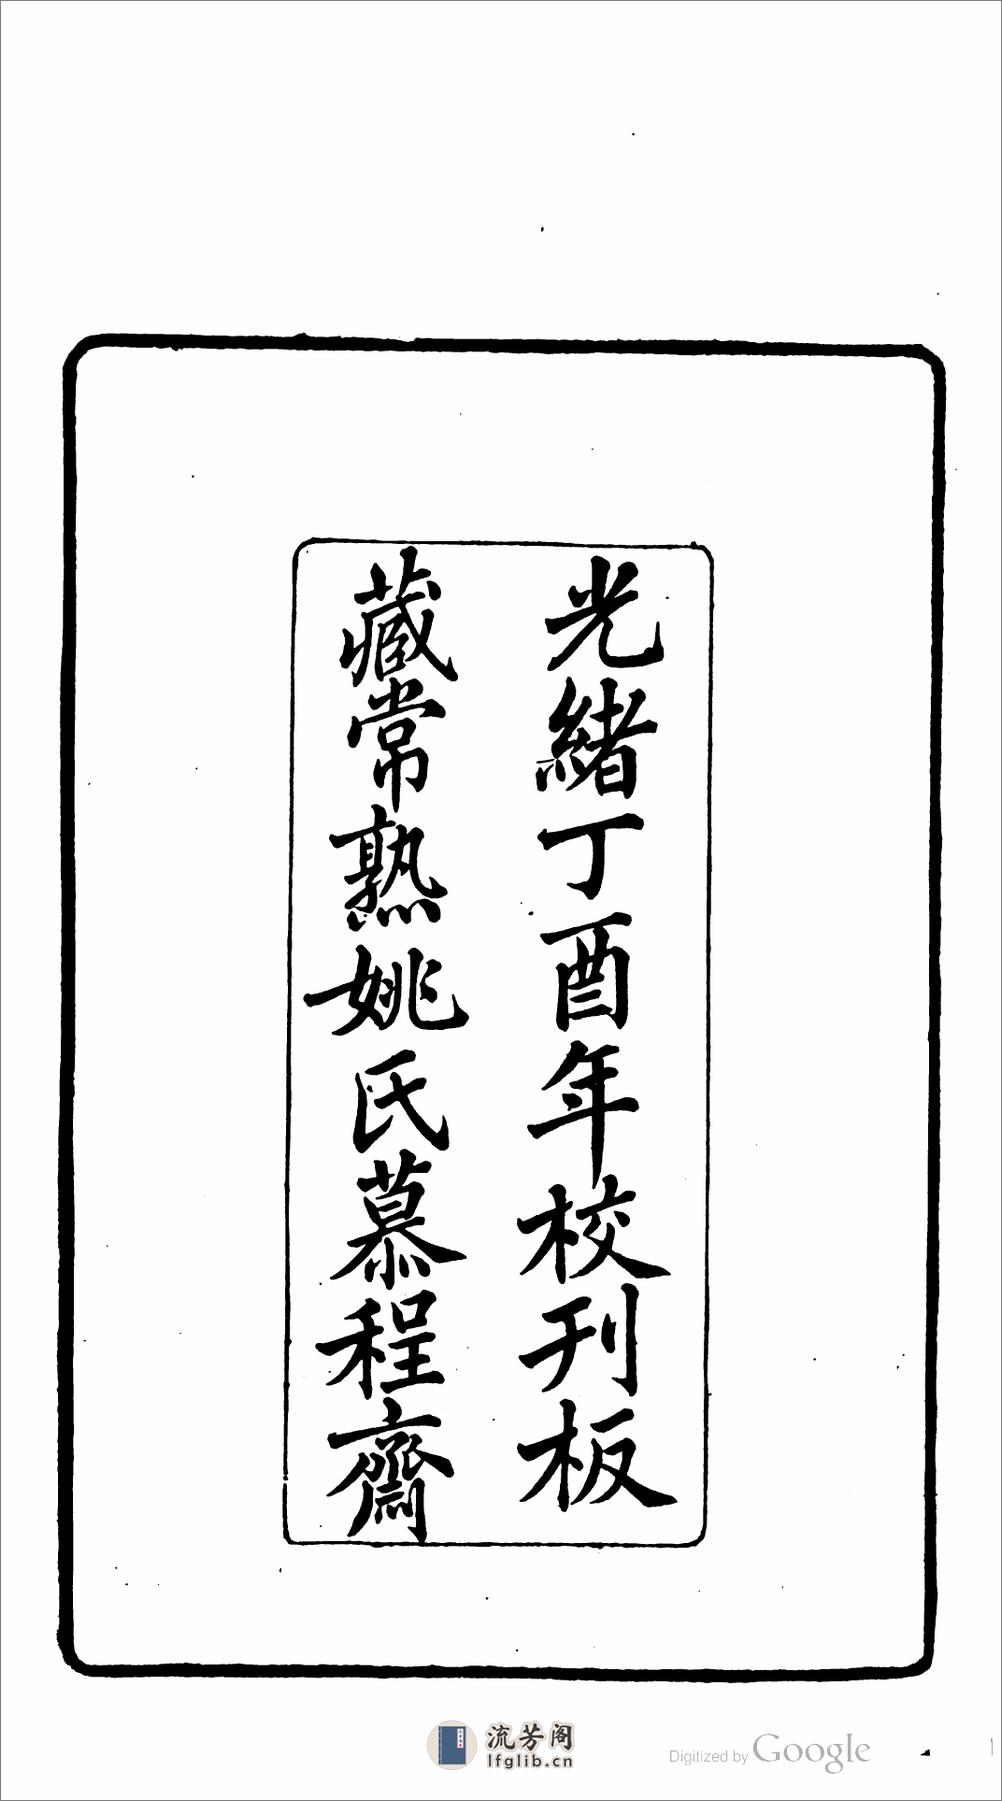 光緒丁酉年校刊板
藏常熟姚氏慕程齋
流芳阁
lfglib.cn
Digitized by Google